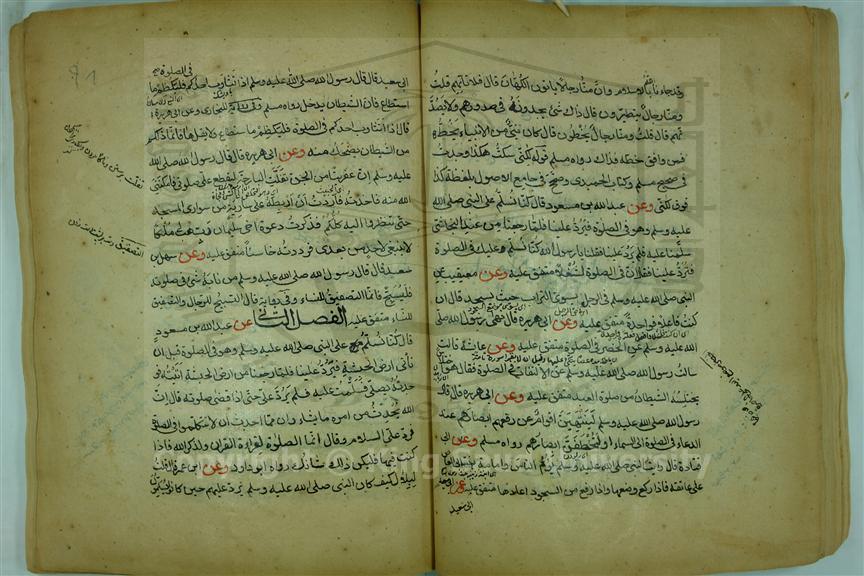 وقد جاءنا الله بالاسلام وان منا رجالا ياتون الكهان قال فلا تاتهم قلت
ومنا رجال يتطيرون قال ذاك شئ يجدونه في صدورهم فلا يصدنهم
قال قلت ومنا رجال يخطون قال كان نبي من الانبياء يخط
فمن وافق خطه فذاك رواه مسلم قوله لكني سكت هكذا وجدت
في صحيح مسلم وكتاب الحميدي وصحح في جامع الاصول بلفظة كذا
فوق لكني وعن عبد الله بن مسعود قال كنا نسلم على النبي صلى الله
عليه وسلم وهو في الصلوة فيرد علينا فلما رجعنا من عند النجاشي
سلمنا عليه فلم يرد علينا فقلنا يا رسول الله كنا نسلم عليك في الصلوة
فترد علينا فقال ان في الصلوة لشغلا متفق عليه وعن معيقيب عن
النبي صلى الله عليه وسلم في الرجل يسوي التراب حيث يسجد قال ان
كنت فاعلا فواحدة متفق عليه وعن ابي هريرة قال نهى رسول الله صلى
الله عليه وسلم عن الخصر في الصلوة متفق عليه وعن عائشة قالت
سالت رسول الله صلى الله عليه وسلم عن الالتفات في الصلوة فقال هو
يختلسه الشيطان من صلوة العبد متفق عليه وعن ابي هريرة قال قال
رسول الله صلى الله عليه وسلم لينتهين اقوام عن رفعهم ابصارهم عند
الدعاء في الصلوة الى السماء او لتخطفن ابصارهم رواه مسلم وعن ابي
قتادة قال رايت النبي صلى الله عليه وسلم يؤم الناس وامامة بنت ابي العاص
على عاتقه فاذا ركع وضعها واذا رفع من السجود اعادها متفق عليه وعن
ابي سعيد
في الصلوة
ابي سعيد قال قال رسول الله صلى الله عليه وسلم اذا تثاوب احدكم فليكظم ما
استطاع فان الشيطان يدخل رواه مسلم وفي رواية للبخاري عن ابي هريرة
قال اذا تثاوب احدكم في الصلوة فليكظم ما استطاع ولا يقل ها فانما ذلكم
من الشيطان يضحك منه وعن ابي هريرة قال قال رسول الله صلى الله
عليه وسلم ان عفريتا من الجن تفلت البارحة ليقطع علي صلوتي فامكنني
الله منه فاخذته فاردت ان اربطه على سارية من سواري المسجد
حتى تنظروا اليه كلكم فذكرت دعوة اخي سليمان رب هب لي ملكا
لا ينبغي لاحد من بعدي فرددته خاسئا متفق عليه وعن سهل بن
سعيد قال قال رسول الله صلى الله عليه وسلم من نابه شئ في صلوته
فليسبح فانما التصفيق للنساء وفي رواية قال التسبيح للرجال والتصفيق
للنساء متفق عليه الفصل الثاني عن عبد الله بن مسعود
قال كنا نسلم على النبي صلى الله عليه وسلم وهو في الصلوة قبل ان
ناتي ارض الحبشة فيرد علينا فلما رجعنا من ارض الحبشة اتيته
فوجدته يصلي فسلمت عليه فلم يرد علي حتى اذا قضى صلوته قال ان
الله يحدث من امره ما يشاء وان مما احدث ان لا تتكلموا في الصلوة
فرد علي السلام وقال انما الصلوة لقراءة القران ولذكر الله فاذا
كنت فيها فليكن ذلك شانك رواه ابو داود وعن ابن عمر قال قلت
لبلال كيف كان النبي صلى الله عليه وسلم يرد عليهم حين كانوا يسلمون